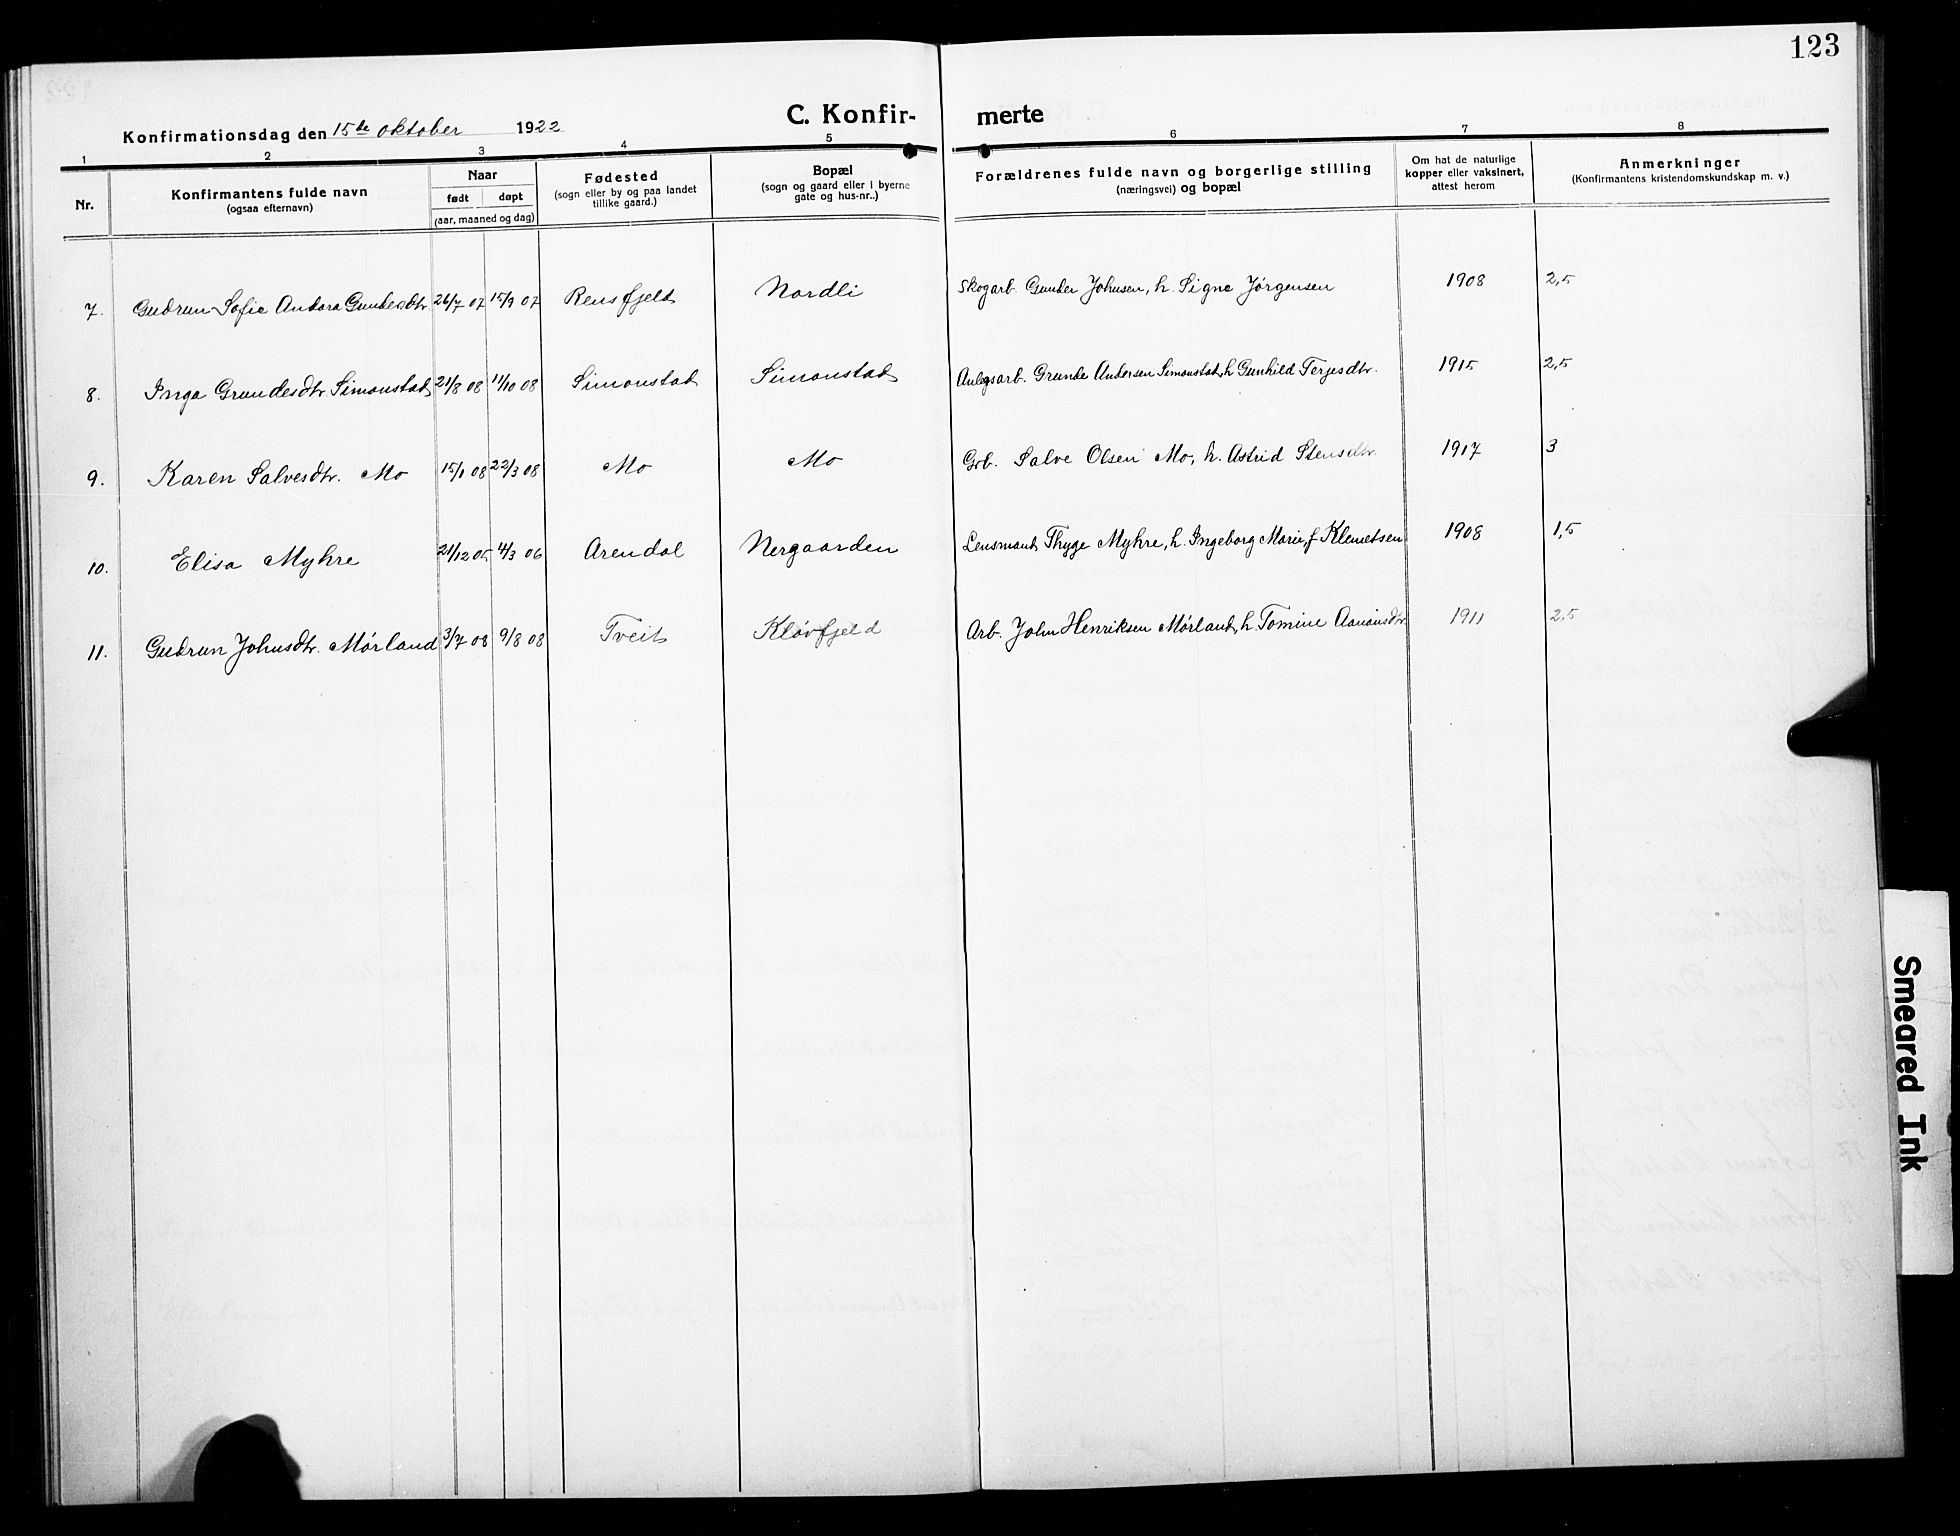 123
C. Konfir- merte
Konfirmationsdag den 15de oktober 1922
1 2 3 4 5 6 7 8
Nr.
Konfirmantens fulde navn
(ogsaa efternavn)
Naar
født døpt
(aar, maaned og dag)
Fødested
(sogn eller by og paa landet
tillike gaard.)
Bopæl
(sogn og gaard eller i byerne
gate og hus-nr..)
Forældrenes fulde navn og borgerlige stilling
(næringsvei) og bopæl
Om hat de naturlige
kopper eller vaksinert,
attest herom
Anmerkninger
(Konfirmantens kristendomskundskap m. v.)
7. Gudrun Sofie Andora Gundersdtr 26/7 07 15/9 07 Rensfjeld Nordli Skogarb. Gunder Johnsen, h. Signe Jørgensen 1908 2,5
8. Inga Grundesdtr. Simonstad 21/8 08 11/10 08 Simonstad Simonstad Anlegsarb. Grunde Andersen Simonstad, h Gunhild Terjesdtr. 1915 2,5
9. Karen Salvesdtr. Mo 15/1 08 22/3 08 Mo Mo Grb. Salve Olsen Mo, h. Astrid Stensdtr. 1917 3
10. Elisa Myhre 21/12 05 4/3 06 Arendal Nergaarden Lensmand Thyge Myhre, h. Ingeborg Marie, f Klemetsen 1908 1,5
11. Gudrun Johnsdtr. Mørland 3/7 08 9/8 08 Tveit Kløvfjeld Arb. John Henriksen Mørland, h Tomine Aanonsdtr. 1911 2,5
Smeared Ink